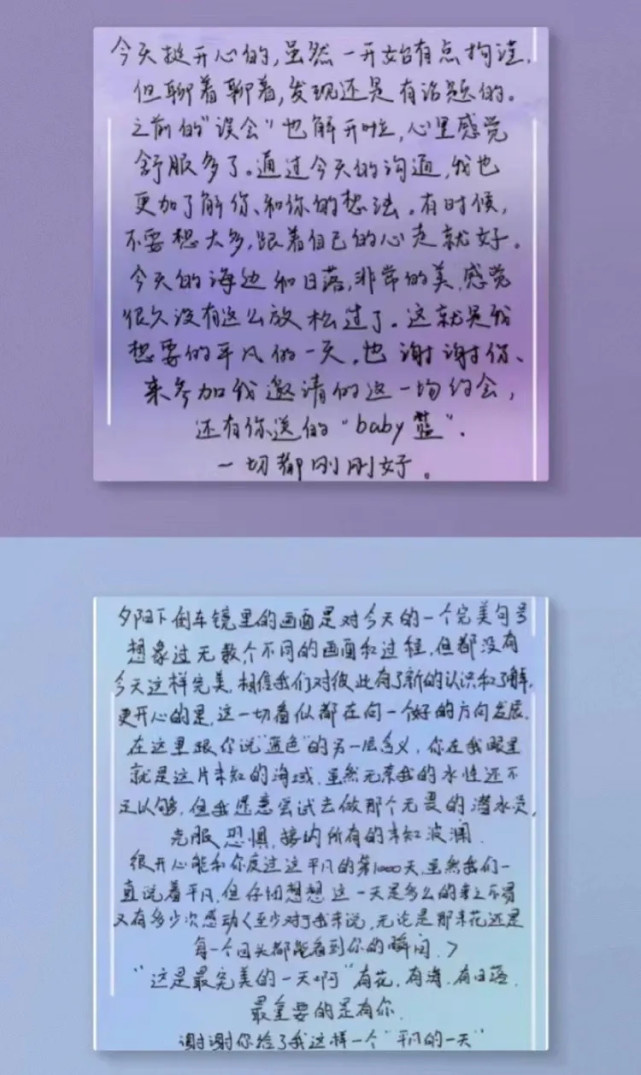 今天挺开心的,虽然一开始有点拘谨,
但聊着聊着,发现还是有话题的。
之前的“误会”也解开啦,心里感觉
舒服多了。通过今天的沟通,我也
更加了解你、和你的想法。有时候,
不要想太多,跟着自己的心走就好。
今天的海边和日落,非常的美,感觉
很久没有这么放松过了。这就是我
想要的平凡的一天,也谢谢你、
来参加我邀请的这一场约会,
还有你送的“baby蓝”.
一切都刚刚好。
夕阳下倒车镜里的画面是对今天的一个完美句号
想象过无数个不同的画面和过程,但都没有
今天这样完美,相信我们对彼此有了新的认识和了解,
更开心的是,这一切看似都在向一个好的方向发展.
在这里跟你说“蓝色”的另一层含义,你在我眼里
就是这片未知的海域,虽然无奈我的水性还不
足以够,但我愿意尝试去做那个无畏的潜水员,
克服恐惧,接纳所有的未知波澜.
很开心能和你度过这平凡的第1000天,虽然我们一
直说着平凡,但仔细想想这一天是多么的来之不易
又有多少次感动<至少对于我来说,无论是那束花还是
每一个回头都能看到你的瞬间.>
“这是最完美的一天啊”有花,有海,有日落,
最重要的是有你.
谢谢你给了我这样一个“平凡的一天”